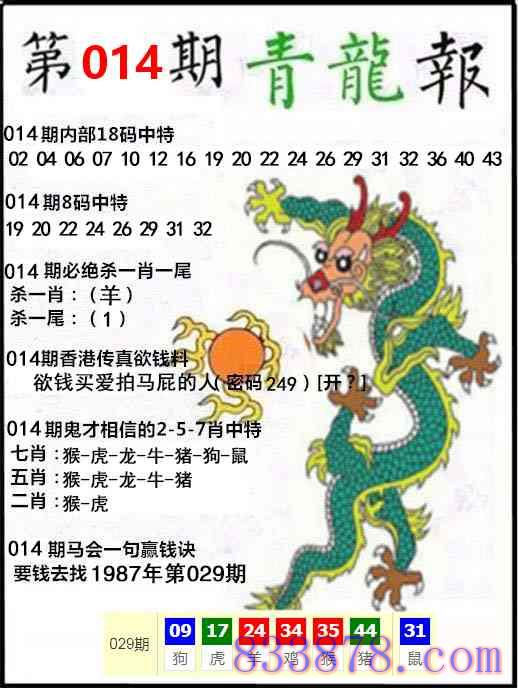 第014期青龍報
014期内部18码中特
02 04 06 07 10 12 16 19 20 22 24 26 29 31 32 36 40 43
014期8码中特
19 20 22 24 26 29 31 32
014 期必绝杀一肖一尾
杀一肖：（羊）
杀一尾：（1）
014期香港传真欲钱料
欲钱买爱拍马屁的人（密码249）[开？]
014期鬼才相信的2-5-7肖中特
七肖：猴-虎-龙-牛-猪-狗-鼠
五肖：猴-虎-龙-牛-猪
二肖：猴-虎
014 期马会一句赢钱诀
要钱去找1987年第029期
029期 09 17 24 34 35 44 31
狗 虎 羊 鸡 猴 猪 鼠
833878.com